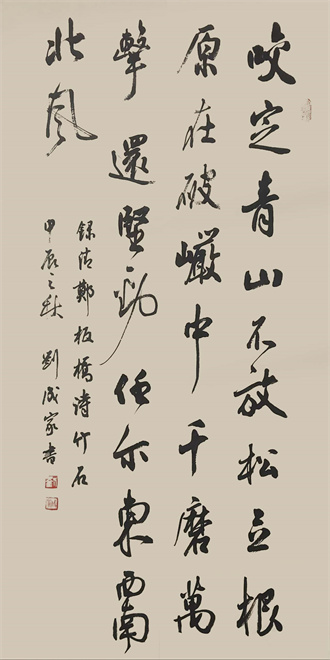 咬定青山不放松立根
原在破巖中千磨萬
擊還堅勁任尔東西南
北风
録清鄭板橋詩竹石
甲辰之秋劉成家書